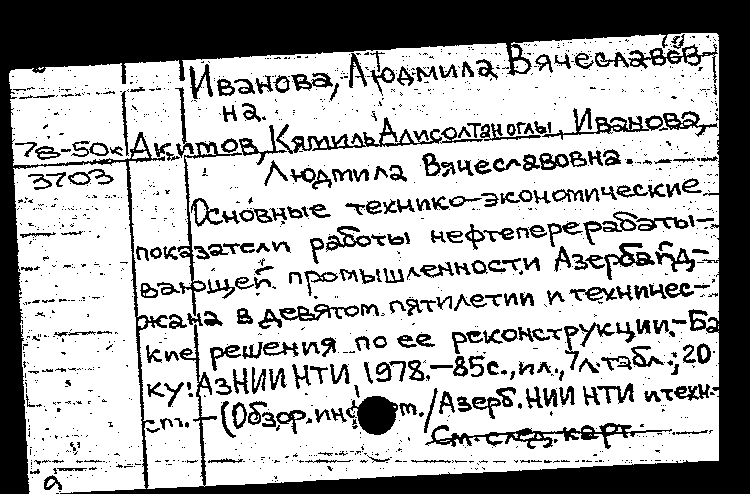 Иванова, Людмила Вячеславов-
на.
78-50к Акимов, Кямиль Алисолтаноглы, Иванова,
3703 Людмила Вячеславовна.
Основные технико-экономические
показатели работы нефтеперерабаты-
вающей промышленности Азербайд-
жана в девятом пятилетии и техничес-
кие решения по ее реконструкции.-Ба
ку: АзНИИНТИ, 1978.-85с., ил., 7л.табл.; 20
см.-(Обзор. /Азерб. НИИ НТИ и техн.-
См. след. карт.